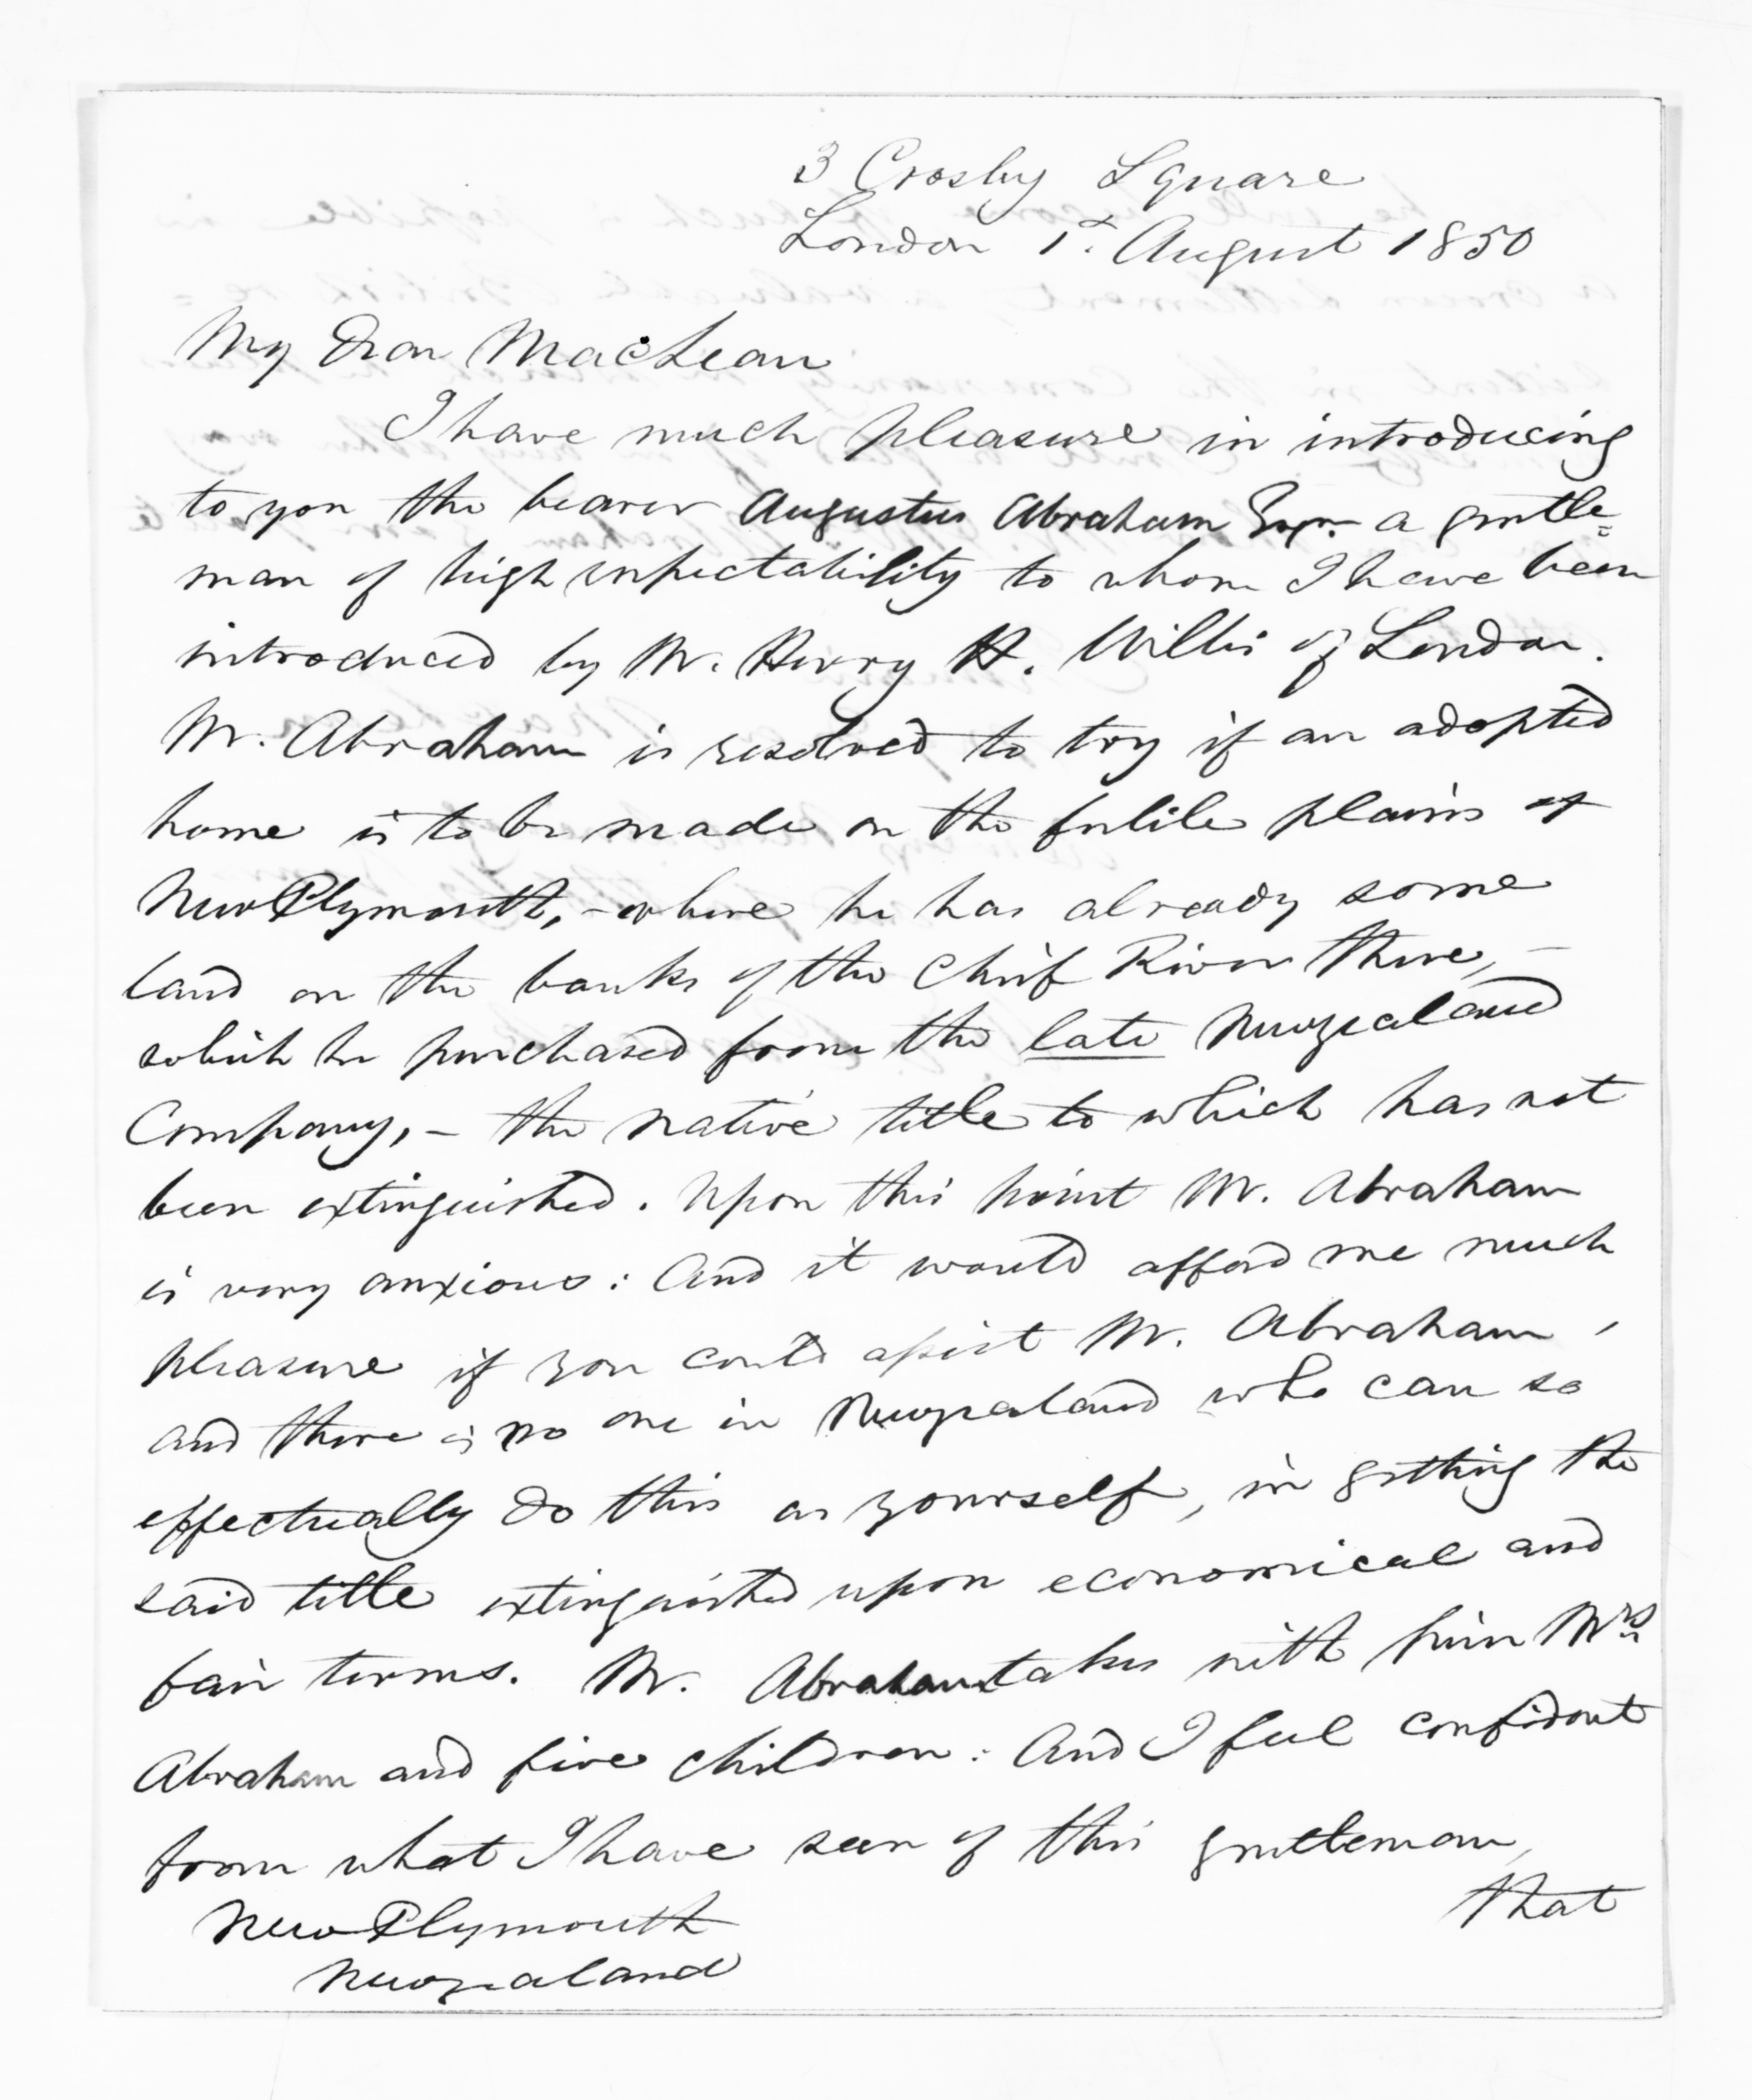 3 Crosby Square
London 1st. August 1850
My Dear MacLean
I have much pleasure in introducing
to you the bearer Augustus Abraham Esqr. a gentle=
man of high respectability to whom I have been
introduced by Mr. Henry H. Willis of London.
Mr. Abraham is resolved to try if an adopted
home is to be made on the fertile plains of
New Plymouth, - where he has already some
land on the banks of the Chief River there, -
which he purchased from the late Newzealand
Company, - the native title to which has not
been extinguished. Upon this point Mr. Abraham
is very anxious: And it would afford me much
pleasure if you could assist Mr. Abraham,
and there is no one in Newzealand who can so
effectually do this as yourself, in getting the
said title extinguished upon economical and
fair terms. Mr. Abraham takes with him Mrs.
Abraham and five children: And I feel confident
from what I have seen of this gentleman,
that
New Plymouth
Newzealand